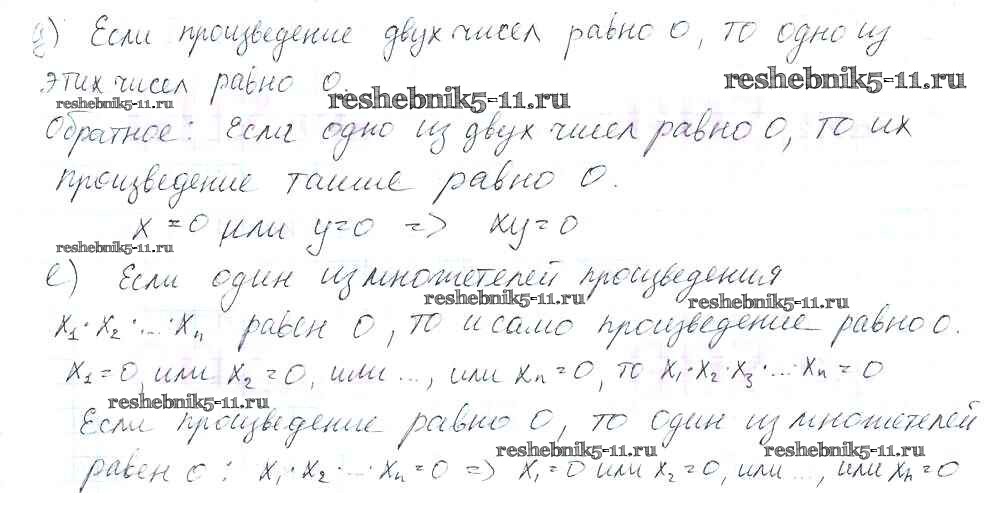 д) Если произведение двух чисел равно 0, то одно из
этих чисел равно 0.
reshebnik5-11.ru
reshebnik5-11.ru
reshebnik5-11.ru
Обратное: Если одно из двух чисел равно 0, то их
произведение также равно 0.
x = 0 или y = 0 => xy = 0
reshebnik5-11.ru
е) Если один из множетелей произведения
reshebnik5-11.ru
reshebnik5-11.ru
x₁·x₂·...·xₙ равен 0, то и само произведение равно 0.
x₁=0, или x₂=0, или ..., или xₙ=0, то x₁·x₂·x₃·...·xₙ=0
reshebnik5-11.ru
Если произведение равно 0, то один из множетелей
reshebnik5-11.ru
reshebnik5-11.ru
равен 0: x₁·x₂·...·xₙ=0 => x₁=0 или x₂=0, или ..., или xₙ=0